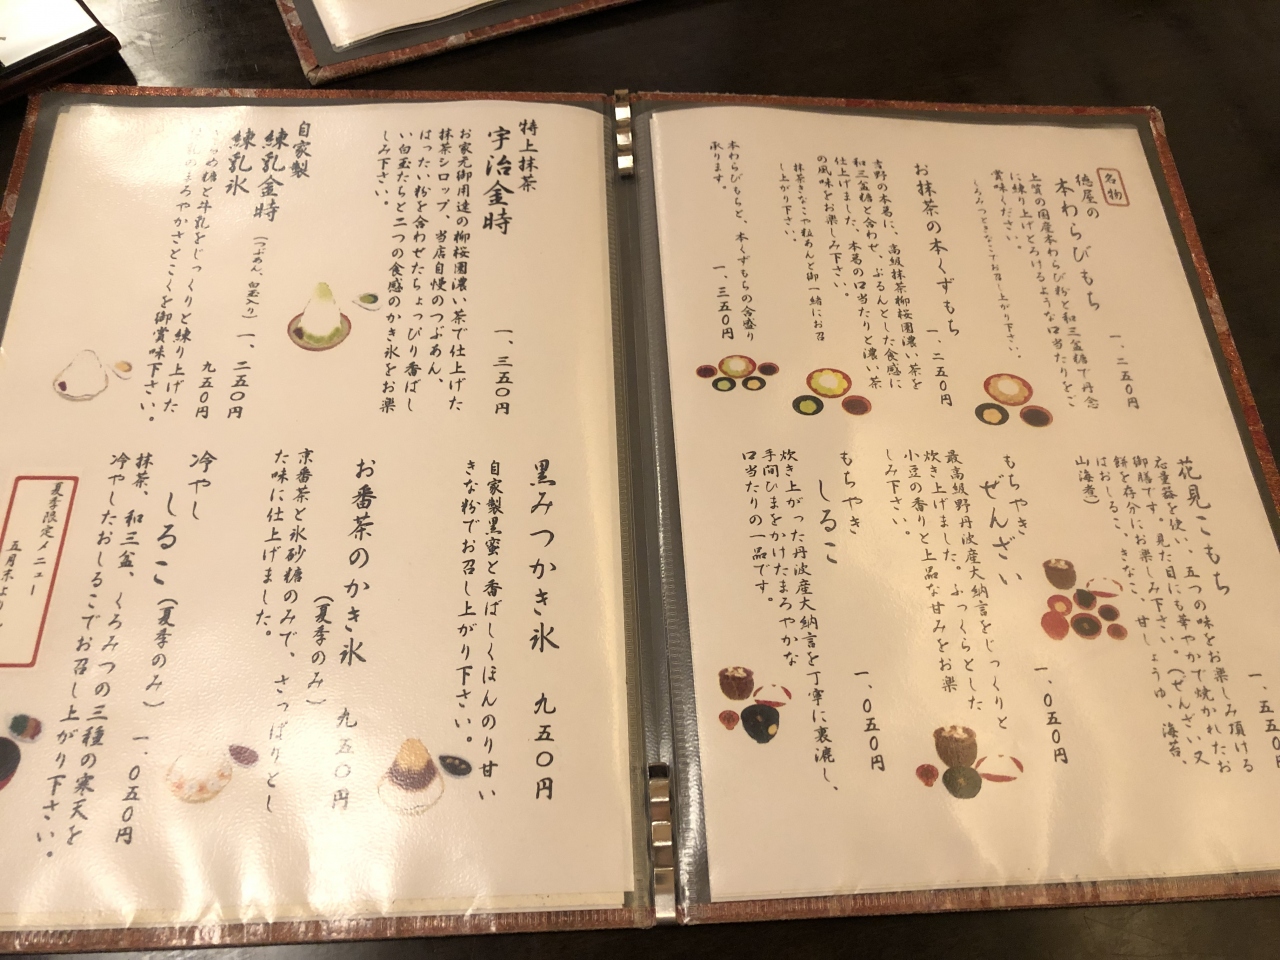 名物
徳屋の
本わらびもち
一、二五〇円
上質の国産本わらび粉と和三盆糖で丹念
に練り上げとろけるような口当たりをご
賞味ください。
くろみつときなこでお召し上がり下さい。
お抹茶の本くずもち
一、二五〇円
吉野の本葛に、高級抹茶柳桜園濃い茶を
和三盆糖と合わせ、ぷるんとした食感に
仕上げました。本葛の口当たりと濃い茶
の風味をお楽しみ下さい。
抹茶きなこや粒あんと御一緒にお召
し上がり下さい。
本わらびもちと、本くずもちの合盛り
承ります。
一、三五〇円
花見こもち
一、五五〇円
石量器を使い、五つの味をお楽しみ頂ける
御膳です。見た目にも華やかで焼かれたお
餅を存分にお楽しみ下さい。(ぜんざい又
はおしるこ、きなこ、甘しょうゆ、海苔、
山海煮)
もちやき
ぜんざい
一、〇五〇円
最高級丹波産大納言をじっくりと
炊き上げました。ふっくらとした
小豆の香りと上品な甘みをお楽
しみ下さい。
もちやき
しるこ
一、〇五〇円
炊き上がった丹波産大納言を丁寧に裏漉し、
手間ひまをかけたまろやかな
口当たりの一品です。
特上抹茶
宇治金時
一、三五〇円
お家元御用達の柳桜園濃い茶で仕上げた
抹茶シロップ、当店自慢のつぶあん、
はったい粉を合わせたちょっぴり香ばし
い白玉たちと二つの食感のかき氷をお楽
しみ下さい。
自家製
練乳金時
(つぶあん、白玉入り)
一、二五〇円
練乳氷
九五〇円
糖と牛乳をじっくりと練り上げた
乳のまろやかさとこくを御賞味下さい。
黒みつかき氷
九五〇円
自家製黒蜜と香ばしくほんのり甘い
きな粉でお召し上がり下さい。
お番茶のかき氷
(夏季のみ)
九五〇円
京番茶と氷砂糖のみで、さっぱりとし
た味に仕上げました。
冷やし
しるこ(夏季のみ)
一、〇五〇円
抹茶、和三盆、くろみつの三種の寒天を
冷やしたおしるこでお召し上がり下さい。
夏季限定メニュー
五月末より